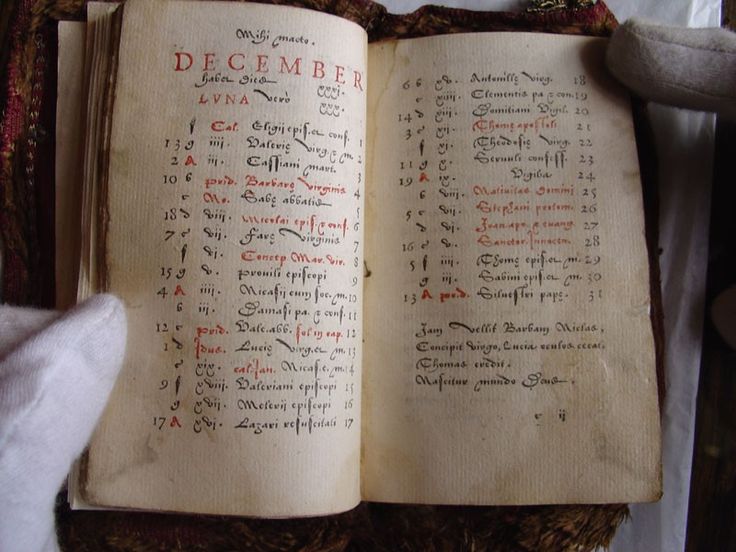 Mihi macto.
DECEMBER
habet dies xxxi.
LVNA verò xxx.
f Cal. Eligii epis. et conf. 1
13 g iiii. Valerię virg. & m. 2
2 A iii. Cassiani mart. 3
10 b prid. Barbarę virginis 4
c No. Sabę abbatis 5
18 d viii. Nicolai epis. & conf. 6
7 e vii. Farę Virginis 7
f vi. Concep Mar. vir. 8
15 g v. Proculi episcopi 9
4 A iiii. Nicasii cum soc. m. 10
b iii. Damasi pa. & conf. 11
12 c prid. Vale. abb. sol in cap. 12
1 d Idus. Lucię virg. et m. 13
e xix. cal. Jan. Nicas. e. m. 14
9 f xviii. Valeriani episcopi 15
g xvii. Melerii episcopi 16
17 A xvi. Lazari resuscitati 17
6 b xv. Antonillę virg. 18
c xiiii. Clementis pa. & con. 19
14 d xiii. Domitiani Virg. 20
3 e xii. Thomę apostoli 21
f xi. Theodosię virg. 22
11 g x. Seruuli confess. 23
19 A ix. Vigilia 24
b viii. Natiuitas domini 25
8 c vii. Stephani protom. 26
d vi. Joan. apo. & euang. 27
16 e v. Sanctor. Innocen. 28
5 f iiii. Thomę epis. et m. 29
g iii. Sabini epis. et m. 30
13 A prid. Siluestri papę. 31
Jam vellit Barbam Niclas,
Concipit virgo, Lucia oculos cęcat.
Thomas credit.
Nascitur mundo Deus.
c ii